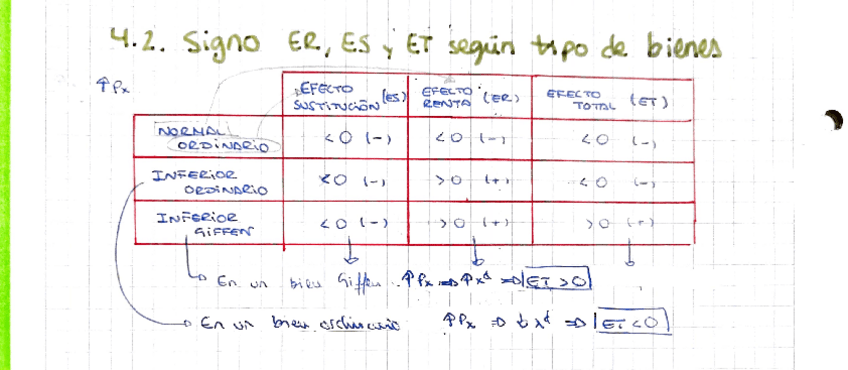 4.2. Signo ER, ES y ET según tipo de bienes
↑Px
EFECTO SUSTITUCIÓN (ES) EFECTO RENTA (ER) EFECTO TOTAL (ET)
NORMAL ORDINARIO <0 (-) <0 (-) <0 (-)
INFERIOR ORDINARIO <0 (-) >0 (+) <0 (-)
INFERIOR GIFFEN <0 (-) >0 (+) >0 (+)
En un bien Giffen ↑Px ⇒ ↑x^d ⇒ ET>0
En un bien ordinario ↑Px ⇒ ↓x^d ⇒ ET<0